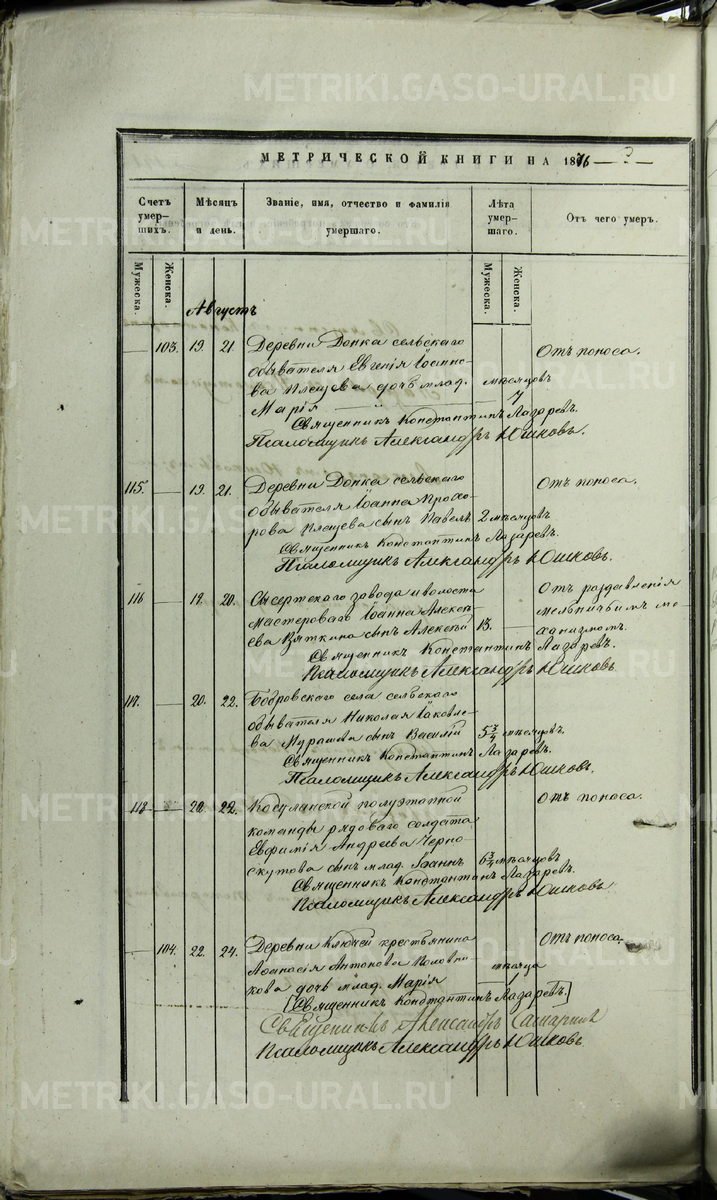 METRIKI.GASO-URAL.RU
МЕТРИЧЕСКОЙ КНИГИ НА 1876 — ? —
Счетъ умер- шихъ.
Мѣсяцъ и день.
Званіе, имя, отчество и фамилія умершаго.
Лѣта умер- шаго.
Отъ чего умеръ.
Мужеска. Женска.
Мужеска. Женска.
Августъ
103. 19. 21. Деревни Донка сельскаго Отъ поноса.
обывателя Евгенія Іоанно-
ва Плещева дочь млад. мѣсяцовъ
Марія — 7
Священникъ Константинъ Лазаревъ.
Псаломщикъ Александръ Юшковъ.
115. — 19. 21. Деревни Донка сельскаго Отъ поноса.
обывателя Іоанна Прохо-
рова Плещева сынъ Павелъ 2 мѣсяцовъ
Священникъ Константинъ Лазаревъ.
Псаломщикъ Александръ Юшковъ.
116 — 19. 20. Сысертскаго завода и волости Отъ раздавленія
мастероваго Іоанна Алексѣ- мельничнымъ ме-
ева Вяткина сынъ Алексѣй 13. — ханизмомъ.
Священникъ Константинъ Лазаревъ.
Псаломщикъ Александръ Юшковъ.
117. — 20. 22. Бобровскаго села сельскаго
обывателя Николая Іаковле-
ва Мурашева сынъ Василій 5 3/4 мѣсяцовъ.
Священникъ Константинъ Лазаревъ.
Псаломщикъ Александръ Юшковъ.
118 — 20. 22. Косулинской полуэтапной Отъ поноса.
команды рядоваго солдата
Евфимія Андреева Черно-
скутова сынъ млад. Іоаннъ 6 3/4 мѣсяцовъ
Священникъ Константинъ Лазаревъ.
Псаломщикъ Александръ Юшковъ
— 104. 22. 24. Деревни Ключей крестьянина Отъ поноса.
Аѳанасія Антонова Половни-
кова дочь млад. Марія мѣсяца
[Священникъ Константинъ Лазаревъ]
Священникъ Александръ
Псаломщикъ Александръ Юшковъ